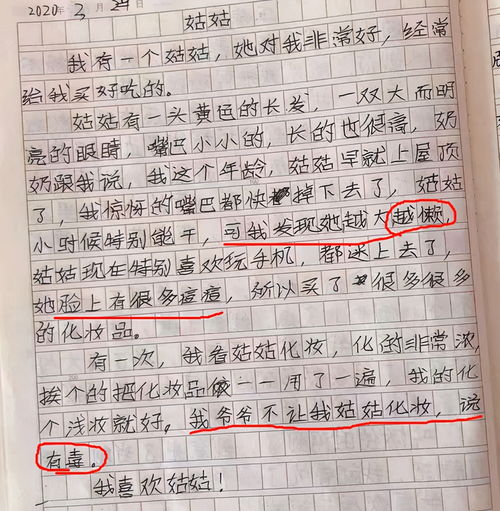 2020年 3 月 29
姑姑
我有一个姑姑，她对我非常好，经常
给我买好吃的。
姑姑有一头黄色的长发，一双大而明
亮的眼睛，嘴巴小小的，长的也很高，奶
奶跟我说，我这个年龄，姑姑早就上屋顶
了，我惊怀的嘴巴都快掉下去了，姑姑
小时候特别能干，可我发现她越大越懒，
姑姑现在特别喜欢玩手机，都迷上去了，
她脸上有很多痘痘，所以买了很多很多
的化妆品。
有一次，我看姑姑化妆，化的非常浓，
挨个的把化妆品一一用了一遍，我的化
个浅妆就好。我爷爷不让我姑姑化妆，说
有毒。
我喜欢姑姑！